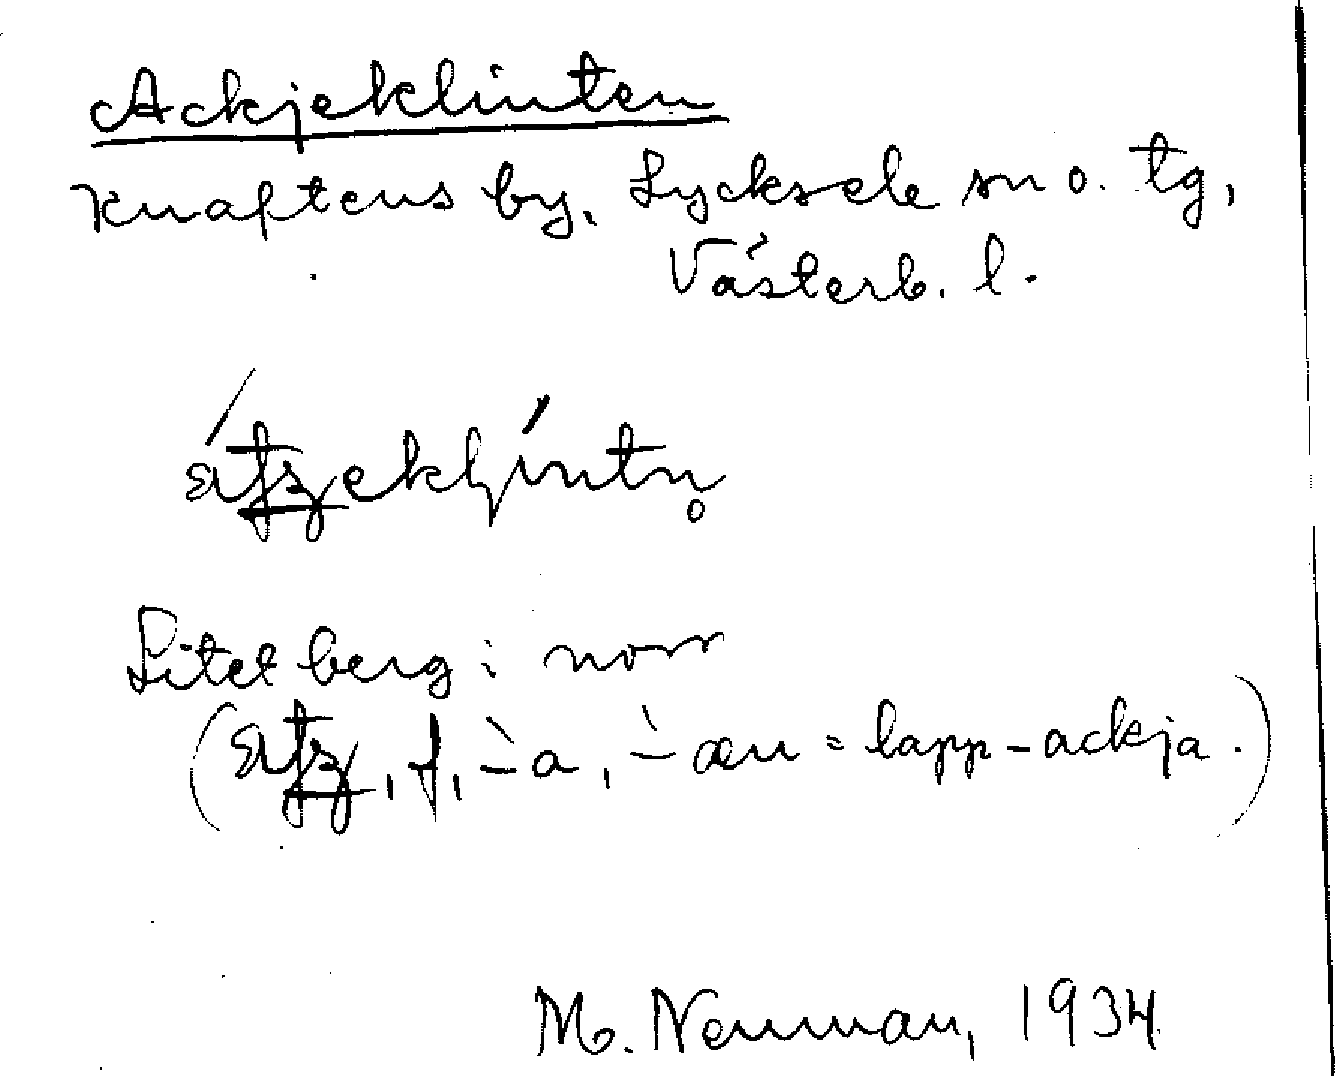 Ackjeklinten
Knaftens by, Lycksele sn o. tg,
Västerb. l.
Litet berg i norr
f, -̀a, -̀æn = lapp-ackja.)
M. Neuman, 1934